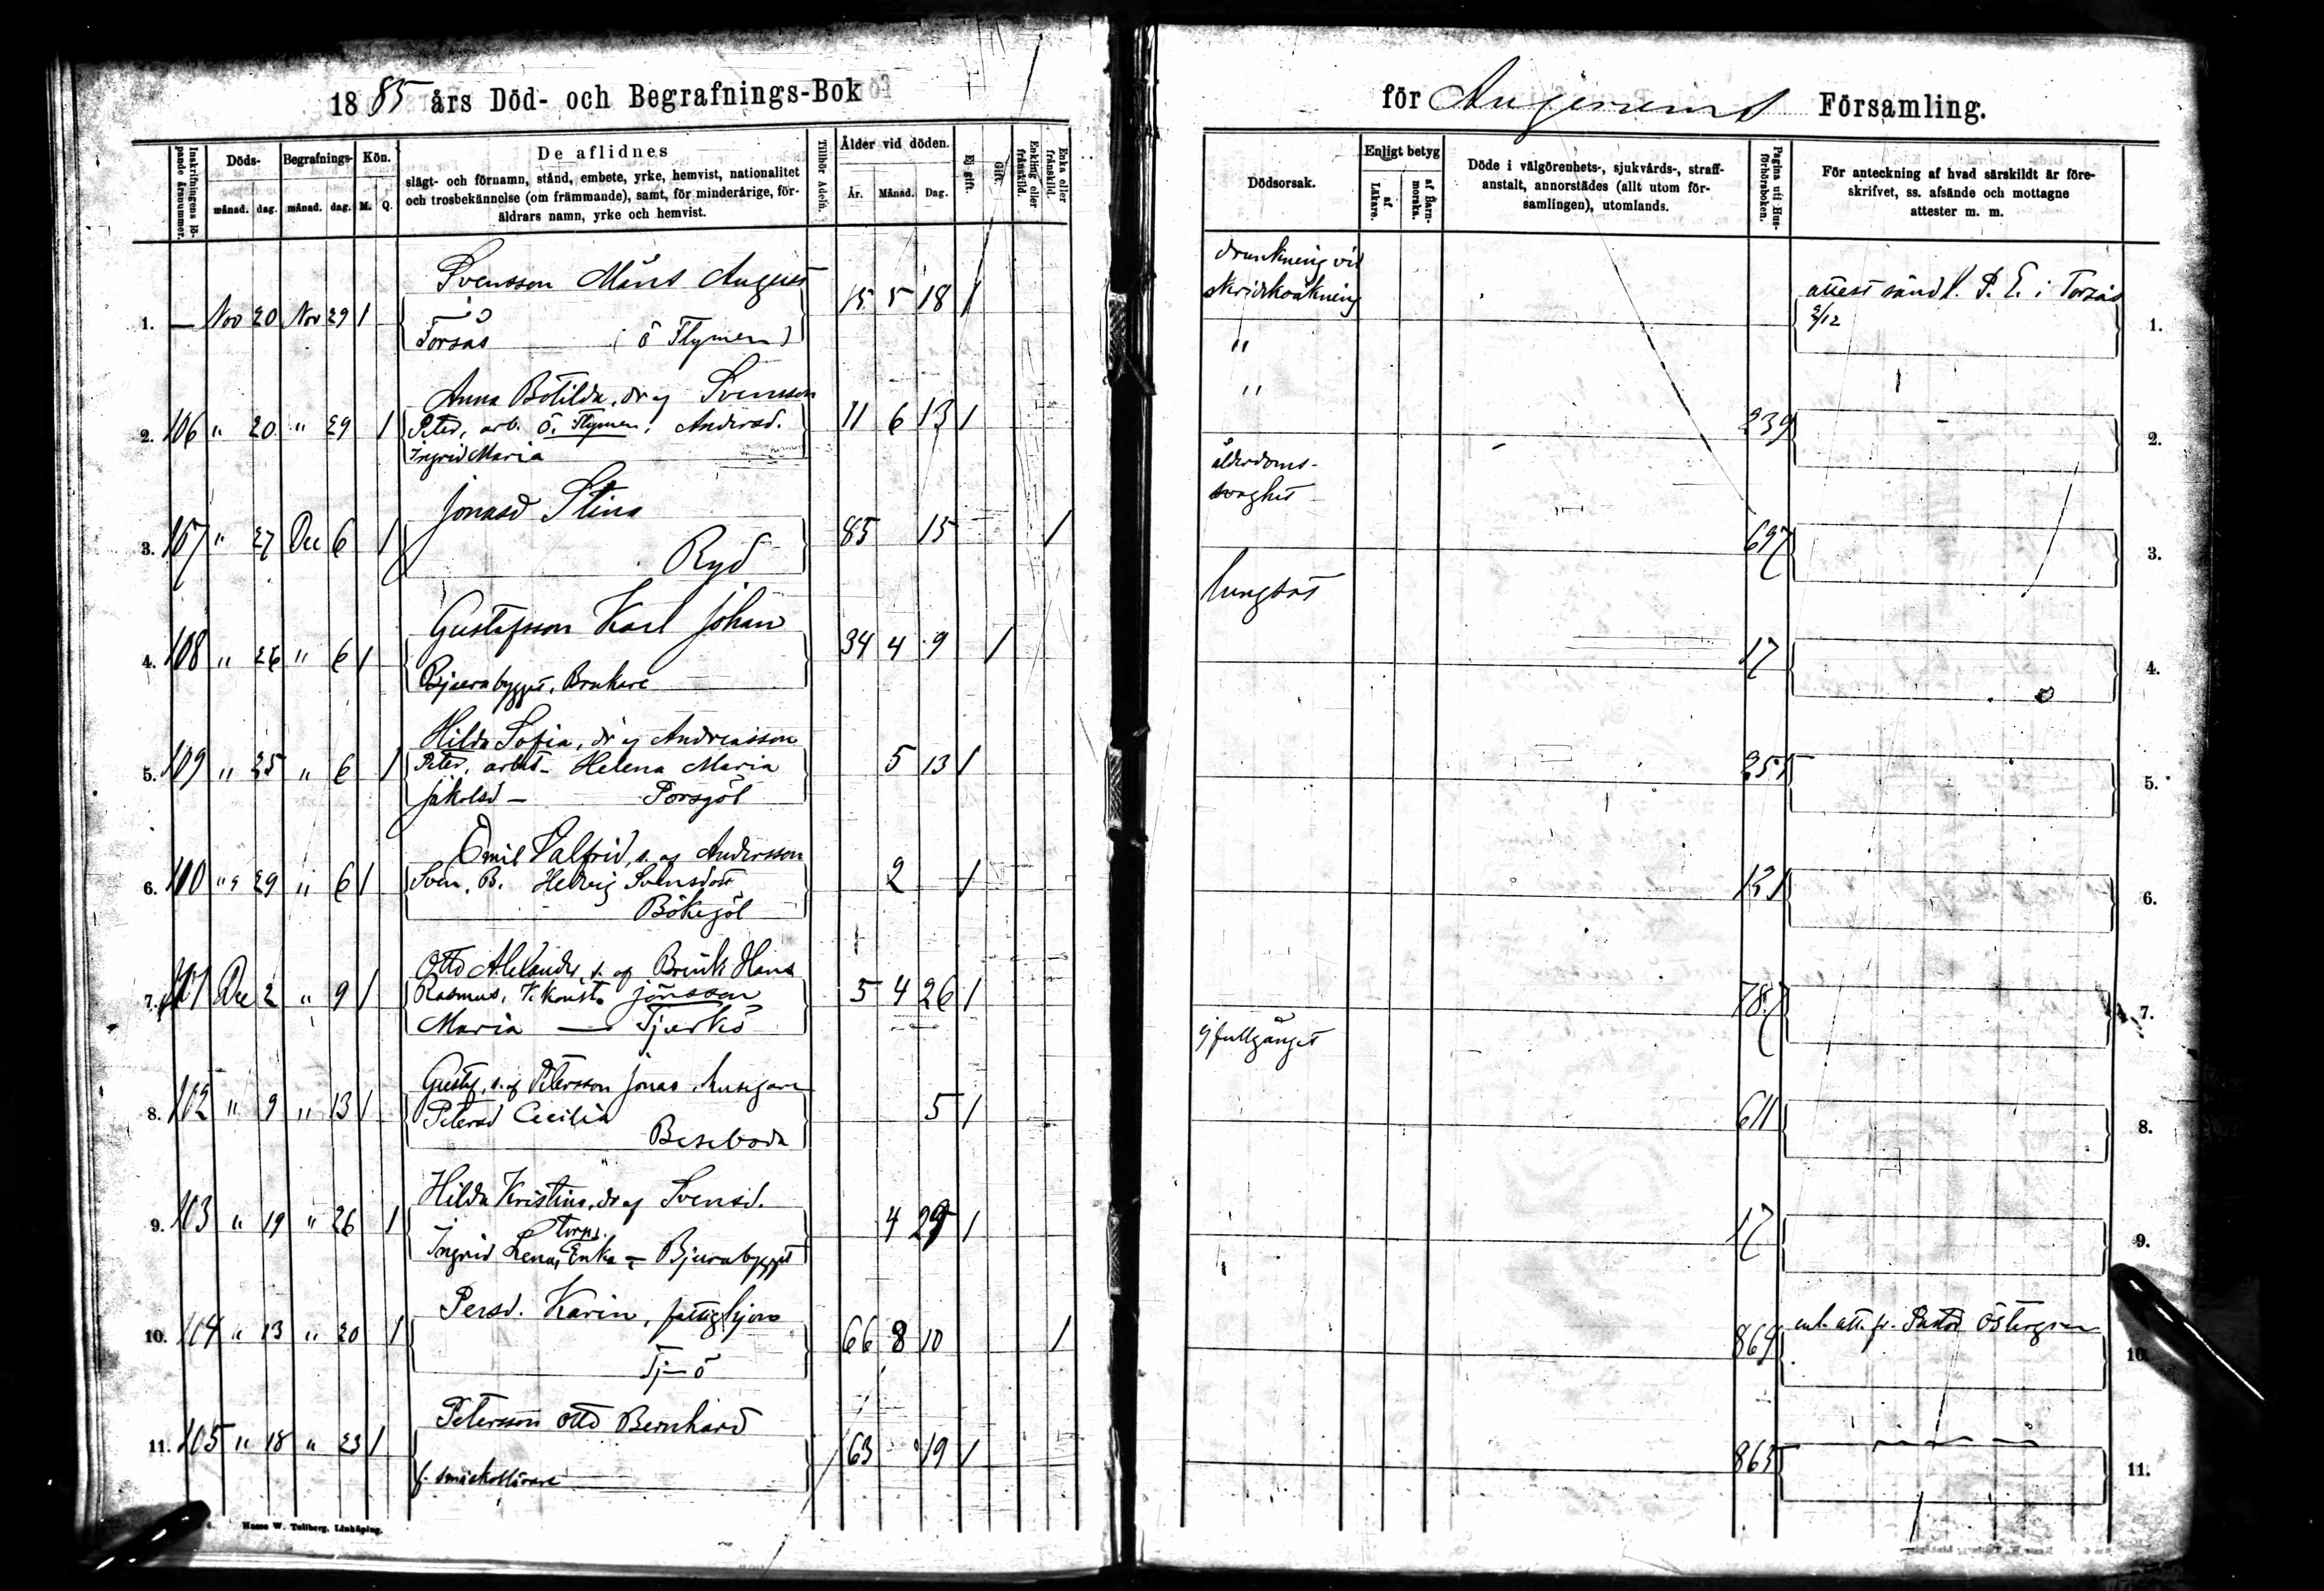 1885 års Död- och Begrafnings-Bok
för Augerums Församling.
Inskrifningens löpande årsnummer.
Döds-
månad. dag.
Begrafnings-
månad. dag.
Kön.
M. Q.
De aflidnes
slägt- och förnamn, stånd, embete, yrke, hemvist, nationalitet
och trosbekännelse (om främmande), samt, för minderårige, för-
äldrars namn, yrke och hemvist.
Tillhör Adeln.
Ålder vid döden.
År. Månad. Dag.
Ej gift.
Gift.
Enkling eller frånskild.
Enka eller frånskild.
Dödsorsak.
Enligt betyg
af Läkare.
af Barnmorska.
Döde i välgörenhets-, sjukvårds-, straff-
anstalt, annorstädes (allt utom för-
samlingen), utomlands.
Pagina uti Husförhörsboken.
För anteckning af hvad särskildt är före-
skrifvet, ss. afsände och mottagne
attester m. m.
Svensson Måns August
1. — Nov 20 Nov 29 1
Torsås (Ö Flymen)
15 5 18 1
drunkning vid
skridskoåkning
attest sänd t. P. E. i Torsås
2/12
1.
"
Anna Botilda, dr af Svensson
2. 106 " 20 " 29 1 Peter, arb. Ö. Flymen, Andersd.
Ingrid Maria
11 6 13 1
"
239
2.
Jonasd Stina
3. 107 " 27 Dec 6 1
Ryd
85 15 1
ålderdoms-
svaghet
697
3.
Gustafsson Karl Johan
4. 108 " 26 " 6 1
Bjurabygget, Brukare
34 4 9 1
lungsot
17
4.
Hilda Sofia, dr af Andreasson
5. 109 " 25 " 6 1 Peter, arbet- Helena Maria
Jakobsd — Porsgöl
5 13 1
251
5.
Emil Valfrid, s. af Andersson
6. 100 " 29 " 6 1 Sven, B. Hedvig Svensdott
Bökegöl
2 1
131
6.
Otto Alexander, s. af Brink Hans
7. 101 Dec 2 " 9 1 Rasmus, Jönsson
Maria — Tjurkö
5 4 26 1
787
7.
Gustaf, s. af Petersson Jonas, husegare
8. 102 " 9 " 13 1 Petersd Cecilia
Beseboda
5 1
ej fullgånget
611
8.
Hilda Kristina, dr af Svensd.
9. 103 " 19 " 26 1
torps.
Ingrid Lena, Enka — Bjurabygget
4 29 1
17
9.
Persd. Karin, fattighjon
10. 104 " 13 " 20 1
Tj—ö
66 8 10 1
869
enl. att. fr. Pastor Östergren
10.
Petersson Otto Bernhard
11. 105 " 18 " 23 1
f. småskollärare
63 19 1
865
— " — " —
11.
Hasse W. Tullberg, Linköping.